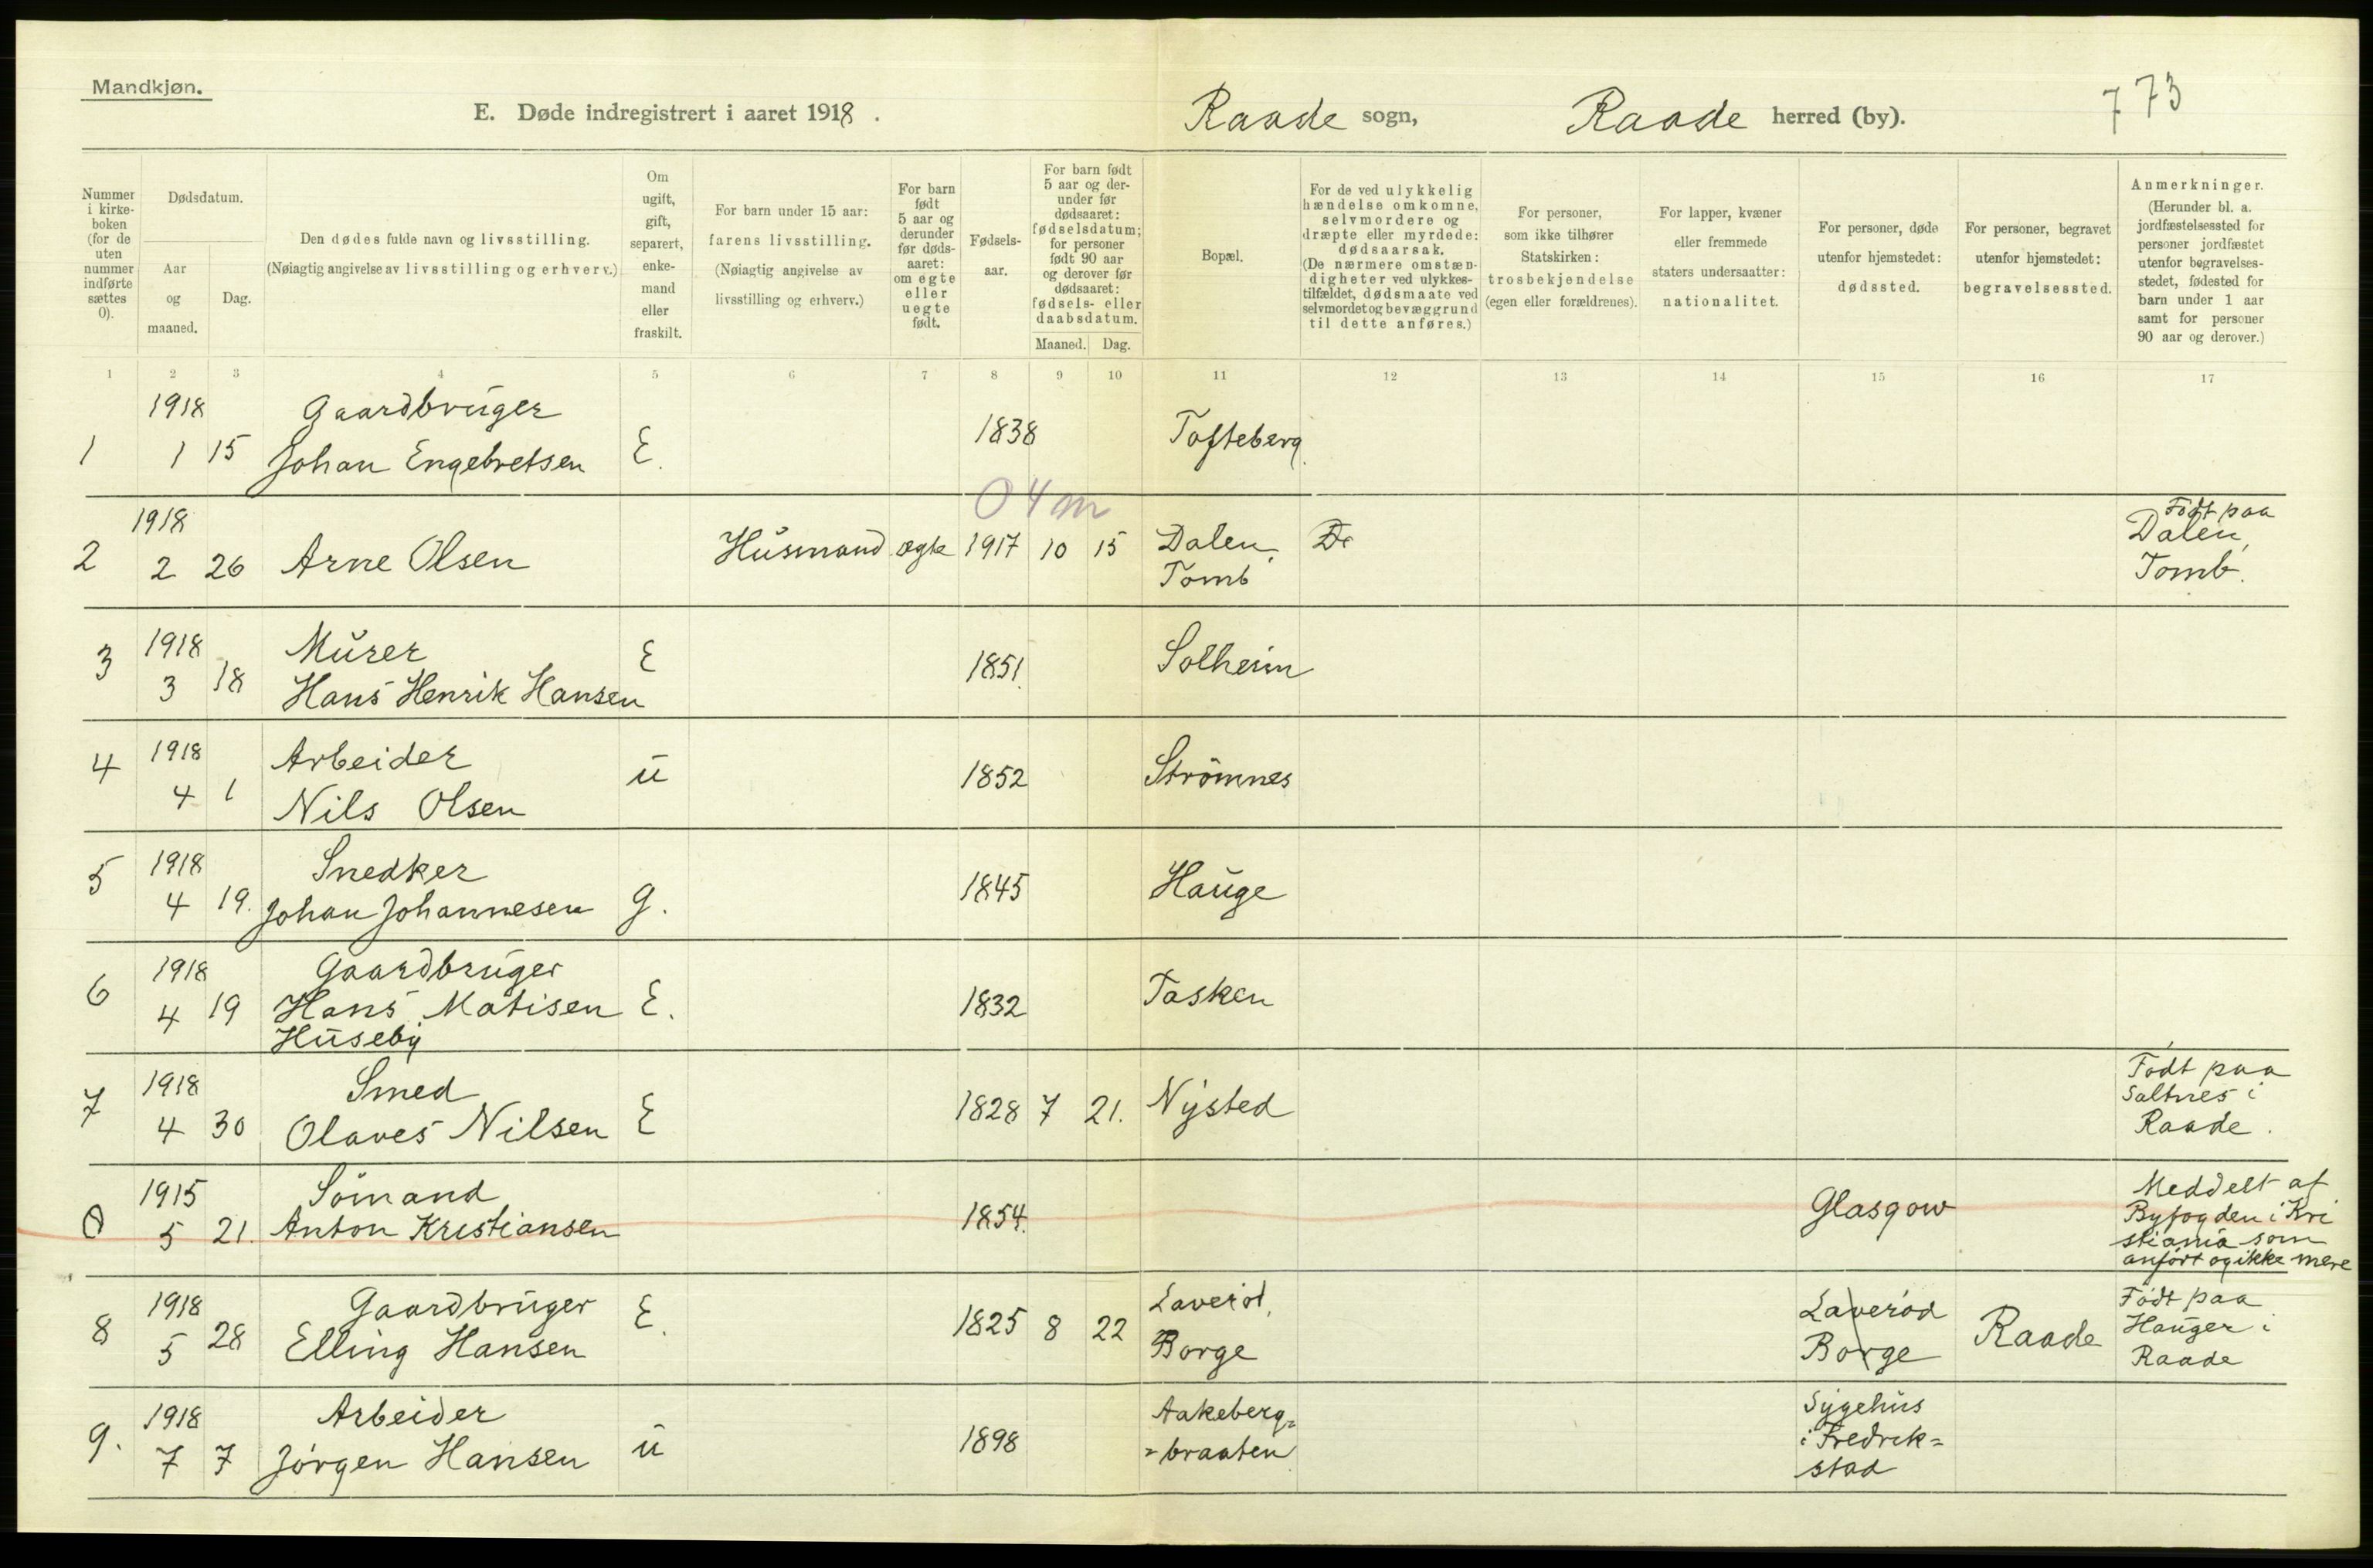 Mandkjøn.
E. Døde indregistrert i aaret 1918. Raade sogn, Raade herred (by). 773
Nummer i kirke-boken (for de uten nummer indførte sættes 0).
Dødsdatum.
Aar og maaned.
Dag.
Den dødes fulde navn og livsstilling.
(Nøiagtig angivelse av livsstilling og erhverv.)
Om ugift, gift, separert, enke-mand eller fraskilt.
For barn under 15 aar: farens livsstilling.
(Nøiagtig angivelse av livsstilling og erhverv.)
For barn født 5 aar og derunder før døds-aaret: om egte eller uegte født.
Fødsels-aar.
For barn født 5 aar og der-under før dødsaaret: fødselsdatum; for personer født 90 aar og derover før dødsaaret: fødsels- eller daabsdatum.
Maaned. Dag.
Bopæl.
For de ved ulykkelig hændelse omkomne, selvmordere og dræpte eller myrdede: dødsaarsak.
(De nærmere omstæn-digheter ved ulykkes-tilfældet, dødsmaate ved selvmordet og bevæggrund til dette anføres.)
For personer, som ikke tilhører Statskirken: trosbekjendelse (egen eller forældrenes).
For lapper, kvæner eller fremmede staters undersaatter: nationalitet.
For personer, døde utenfor hjemstedet: dødssted.
For personer, begravet utenfor hjemstedet: begravelsessted.
Anmerkninger.
(Herunder bl. a. jordfæstelsessted for personer jordfæstet utenfor begravelses-stedet, fødested for barn under 1 aar samt for personer 90 aar og derover.)
1 2 3 4 5 6 7 8 9 10 11 12 13 14 15 16 17
1918 Gaardbruger
1 1 15 Johan Engebretsen E. 1838 Tofteberg.
04m
1918 Født paa
2 2 26 Arne Olsen Husmand ægte 1917 10 15 Dalen, De Dalen,
Tomb Tomb.
1918 Murer
3 3 18 Hans Henrik Hansen E 1851. Solheim
1918 Arbeider
4 4 1 Nils Olsen u 1852 Strömnes
1918 Snedker
5 4 19. Johan Johannesen g. 1845 Hauge
1918 Gaardbruger
6 4 19 Hans Matisen E. 1832 Tasken
Huseby
1918 Smed Født paa
7 4 30 Olaves Nilsen E 1828 7 21. Nysted Saltnes i
Raade.
1915 Sömand Meddelt af
0 5 21. Anton Kristiansen 1854. Glasgow Byfogden i Kri
stiania som
anført og ikke mere
1918 Gaardbruger Laveröd, Laveröd Født paa
8 5 28 Elling Hansen E. 1825 8 22 Borge Borge Raade Hauger i
Raade
1918 Arbeider Aakeberg= Sygehus
9. 7 7 Jörgen Hansen u 1898 =braaten i Fredrik=
stad